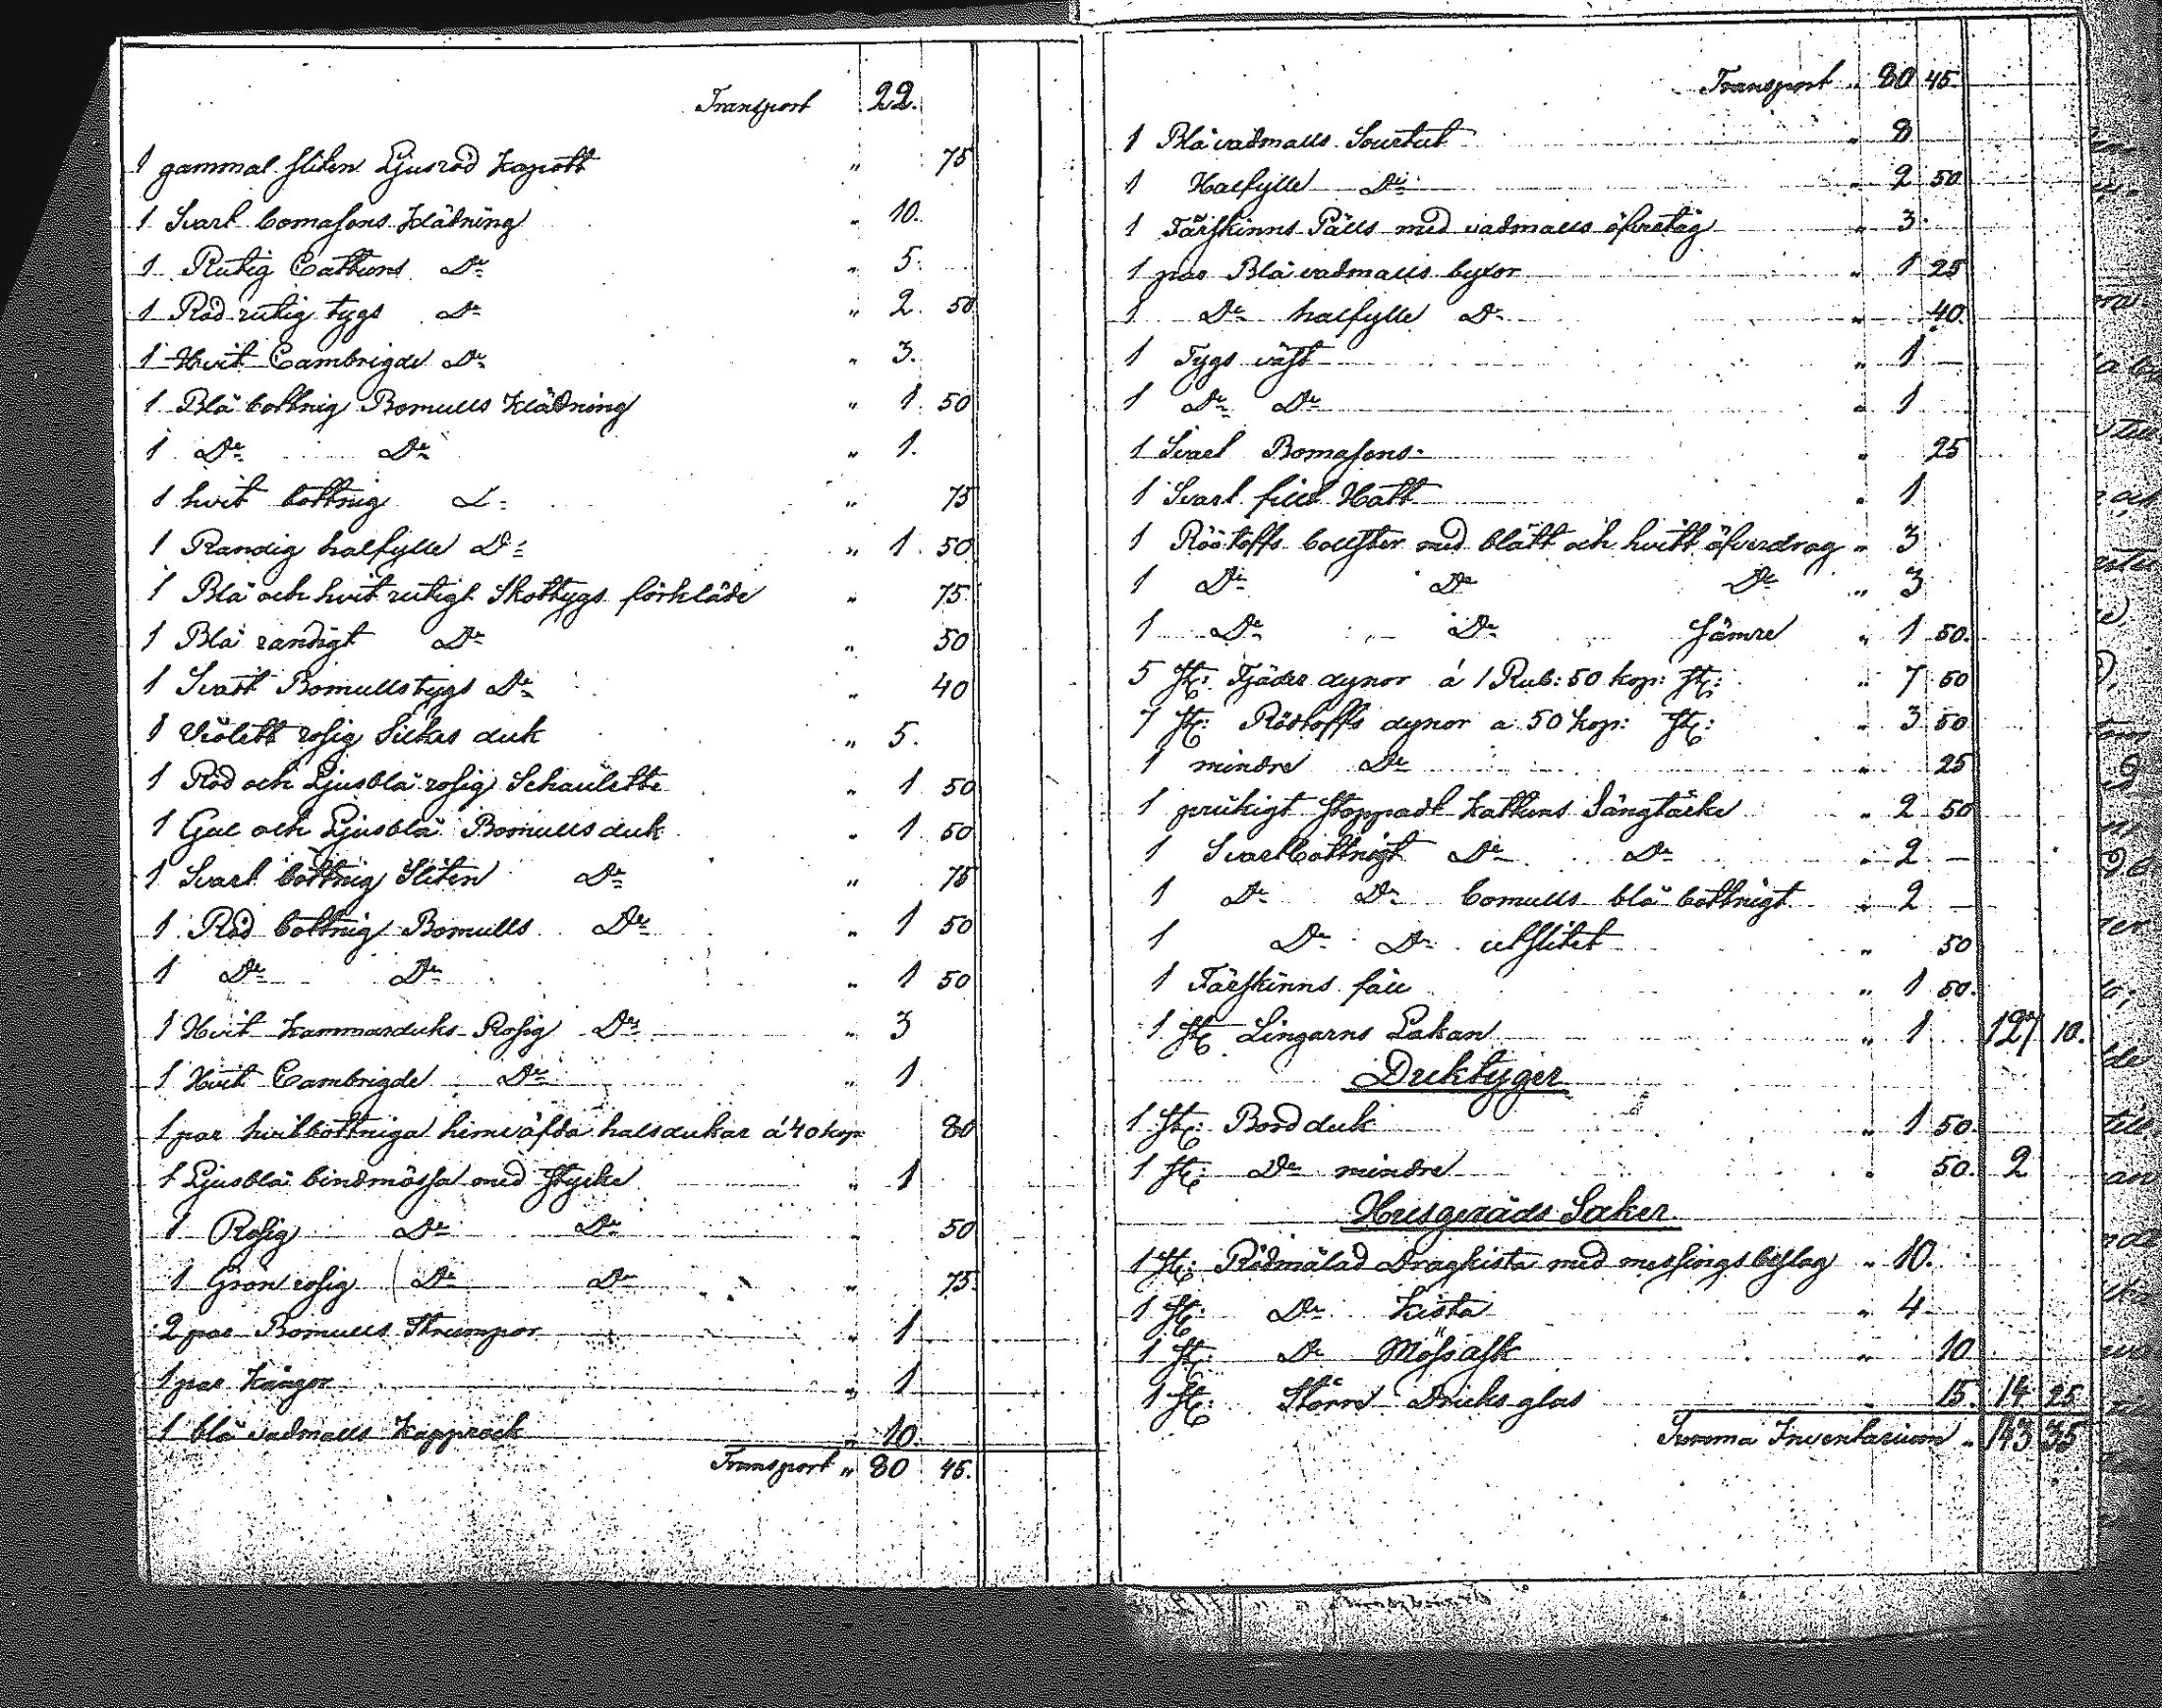 Transport 22.
1 gammal sliten Ljusröd Kapott " 75
1 Svart bomasons Klädning " 10.
1 Rutig Cattuns Do " 5.
1 Röd rutig tygs Do " 2. 50
1 Hvit Cambrigde Do " 3.
1 Blå bottnig Bomulls Klädning " 1. 50
1 Do Do " 1.
1 hvit bottnig D: " 75
1 Randig halfylle Do " 1. 50
1 Blå och hvit rutigt Skottygs förkläde " 75.
1 Blå randigt Do " 50
1 Svart Bomullstygs Do " 40
1 Violett rosig Silkes duk " 5.
1 Röd och Ljusblå rosig Schaulette " 1 50
1 Gul och Ljusblå Bomulls duk " 1. 50
1 Svart bottnig Sliten Do " 75
1 Röd bottnig Bomulls Do " 1 50
1 Do Do " 1 50
1 Hvit Kammarduks Rosig Do " 3
1 Hvit Cambrigde Do " 1
1 par hvitbottniga hemväfda halsdukar á 40 kop: 80
1 Ljusblå bindmössa med stycke " 1
1 Rosig Do Do " 50
1 Grön rosig Do Do " 75.
2 par Bomulls Strumpor " 1
1 par Kängor " 1
1 blå vadmalls Kapprock " 10.
Transport " 80 45.
Transport " 80 45.
1 Blå vadmalls Sourtut " 8
1 Halfylle Do " 2 50
1 Fårskinns Pälls med vadmalls öfvertåg " 3.
1 par Blå vadmalls byxor " 1 25
1 Do halfylle Do " 40.
1 Tygs väst " 1 —
1 Do Do " 1
1 Svart Bomasons " 25
1 Svart filt Hatt " 1
1 Röstoffs bollster med blått och hvitt öfverdrag " 3
1 Do Do Do " 3
1 Do Do sämre " 1 50.
5 st: Fjäder dynor á 1 Rub: 50 kop: st: " 7 50
7 st: Röstoffs dynor a 50 kop: st: " 3 50
1 mindre Do " 25
1 prickigt stoppadt Kattuns Sängtäcke " 2 50
1 Svartbottnigt Do Do " 2 —
1 Do Do bomulls blå bottnigt " 2 —
1 Do Do utslitet " 50
1 Fårskinns fäll " 1 50.
1 st Lingarns Lakan " 1 127 10.
Duktyger
1 st: Bord duk " 1 50.
1 st: Do mindre " 50. 2
Husgeråds Saker
1 st: Rödmålad Dragkista med messingsbeslag " 10.
1 st: Do Kista " 4
1 st: Do Mössask " 10
1 st: Större Dricks glas " 15. 14 25
Summa Inventarium " 143 35